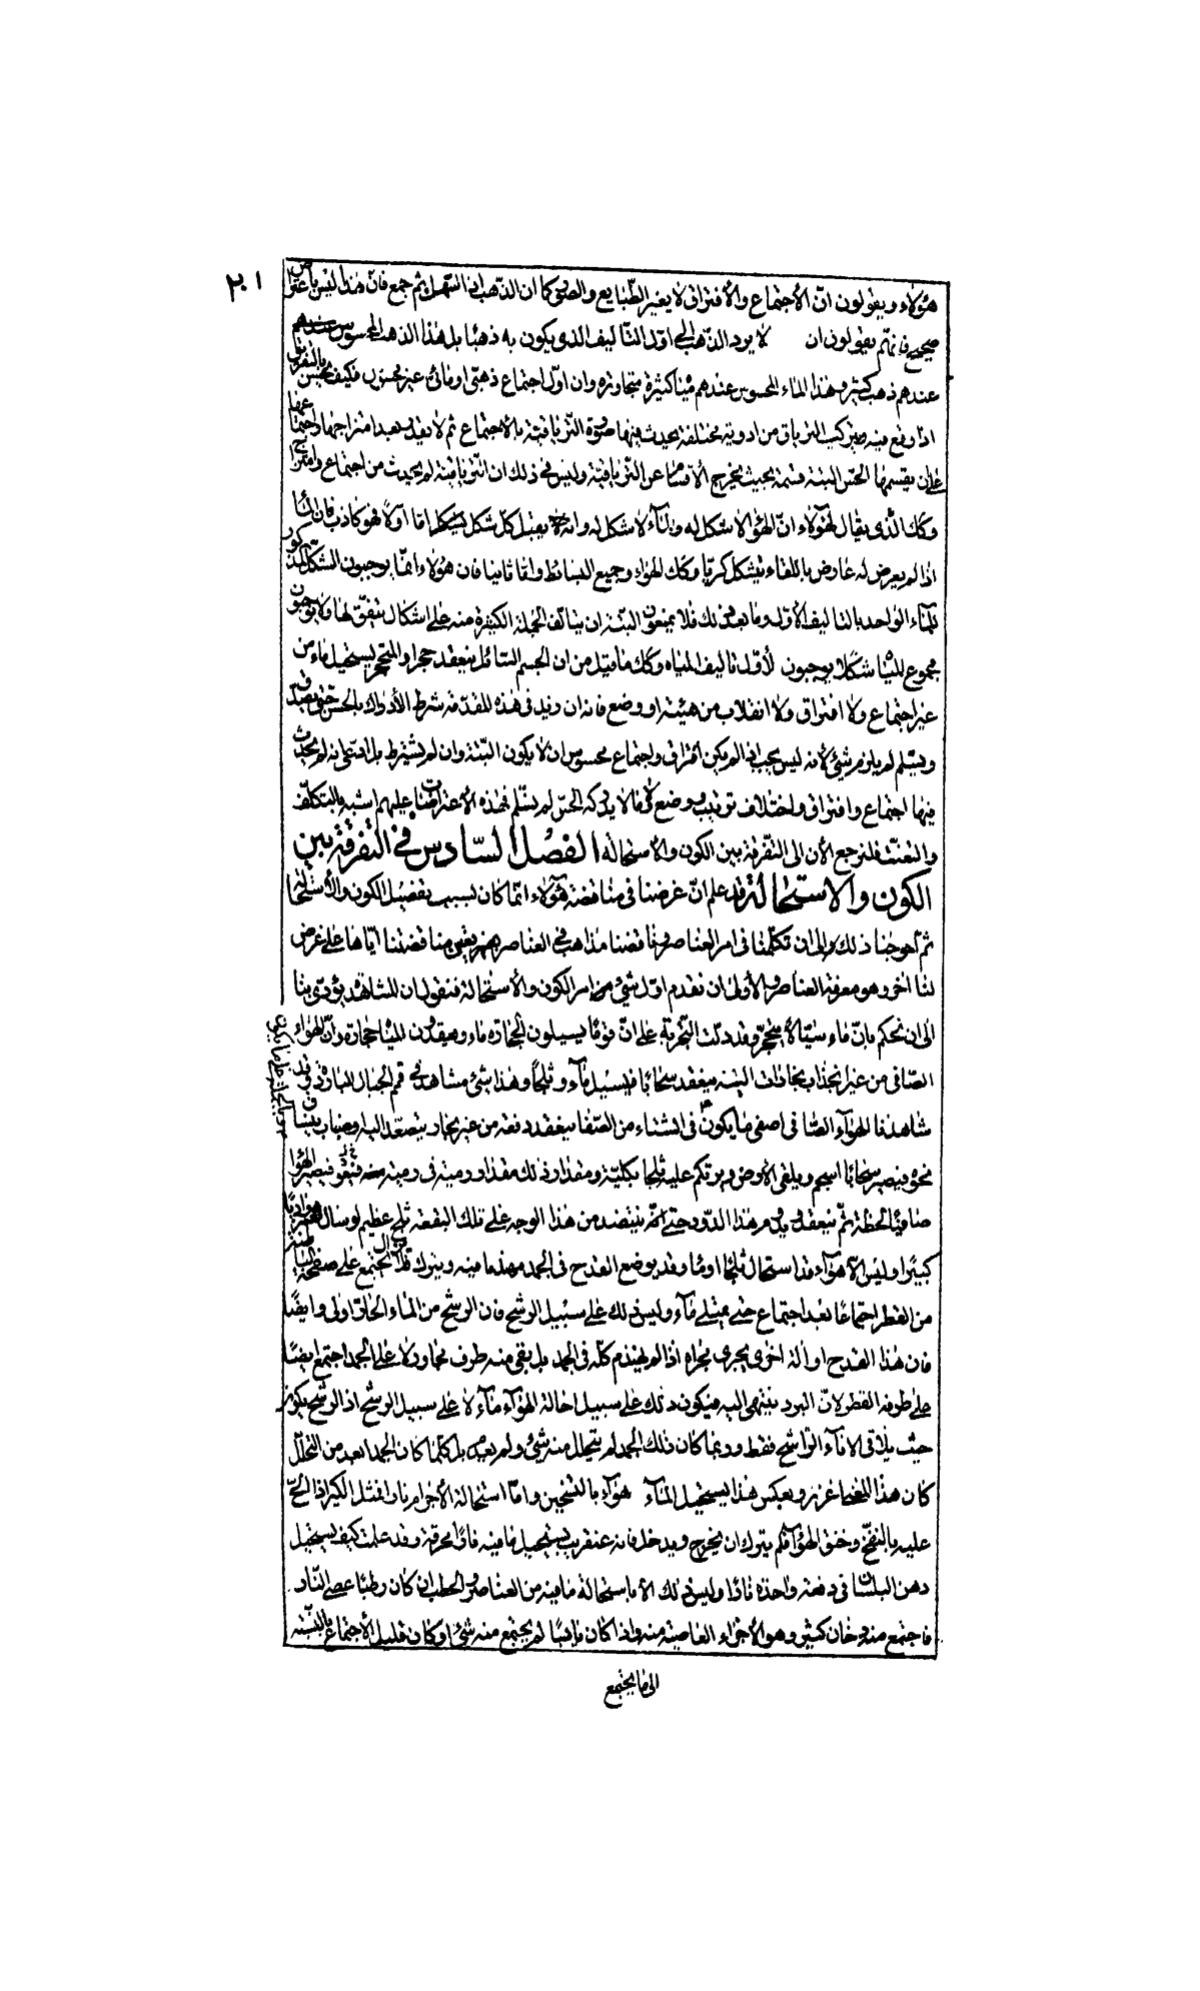 ٢٠١
هؤلاء ويقولون انّ الأجتماع والأفتراق لا يغير الطّبايع والصور كما ان الذّهب اذا السّحل ثم جمع فانّ هذا ليس باعتراض
صحيح فانهّم يقولون ان لا يرد الذّهب الى اوّل التّاليف الذى يكون به ذهبًا بل هذا الذهب المحسوس
عندهم ذهب كثير وهذا الماء المحسوس عندهم مياه كثيرة متجاورة وان اوّل اجتماع ذهبىّ او مائىّ غير محسوس فكيف يحسّ بالتفريق
اذا وقع فيه صرتركيب الترياق من ادوية مختلفة يحدث منها صورة التّرياقيّة بالأجتماع ثم لا يقدر بعد امتزاجها واجتماعها
على ان يقسمها الحسّ البتّة قسمة بحيث يخرج الأقسام عن التّرياقيّة وليس فى ذلك ان التّرياقيّة لم يحدث من اجتماع وامتزاج
وكك الّذى يقال لهؤلاء انّ الهواء لا شكل له والماء لا شكل له وانه يقبل كل شكل امّا اوّلًا فهو كاذب فان الماء
اذا لم يعرض له عارض باللقاء تشكل كريّا وكك الهواء وجميع البسائط وامّا ثانيا فان هؤلاء انّما يوجبون الشكل المذكور
للماء الواحد بالتاليف الأول وما بعد ذلك فلا يمنعون البتّة ان يتالّف الجملة الكبيرة منه على اشكال يتفّق لها ولا يوجبون
مجموع المياه شكلا يوجبون لأوّل تاليف المياه وكك ما قيل من ان الجسم السّائل ينعقد حجرا والمتحجّر يستحيل ماء من
غير اجتماع ولا افتراق ولا انقلاب من هيئة او وضع فانه ان زيد فى هذه المقدّمة شرط الأدراك بالحسّ حتّى يصدق
ويسّلم لم يلزم شئ لأنه ليس يجب اذا لم يكن افتراق واجتماع محسوس ان لا يكون البتّة وان لم يشترط بل ادّعى انه لم يحدث
فيها اجتماع وافتراق واختلاف ترتيب ووضع لا فيما لا يدركه الحسّ لم يسّلم فهذه الأعتراضات عليهم اشبه بالتكلّف
والتعنّت فلنرجع الأن الى التّفرقة بين الكون والأستحالة الفصل السّادس فى التفرقة بين
الكون والاستحالة علم انّ غرضنا فى مناقضة هؤلاء انّما كان بسبب تفصيل الكون والأستحالة
ثمّ احوجنا ذلك الى ان تكلّمنا فى امر العناصر وناقضنا مذاهب فى العناصر مناقضتنا ايّاها على غرض
لنا اخر وهو معرفة العناصر والأولى ان نقدم اوّل شئ من امر الكون والأستحالة فنقول ان المشاهدة يؤدّى بنا
الى ان نحكم بانّ ماء سيّالا يتحجّر وقد دلّت التّجربة على انّ قومًا يسيلون الحجارة ماء ويعقدون المياه حجارة وانّ الهواء
الصّافى من غير انجذاب بخارات اليه ينعقد سحابًا فيسيل ماء وثلجًا وهذا شئ مشاهد فى قمم الجبال الباردة وقد
شاهدنا الهواء الصّافى اصفى ما يكون فى الشتاء من الصّفاء ينعقد دفعة من غير بخار يتصعّد اليه وضباب ينساق
نحوه فيصير سحابًا اسحم ويلقى الأرض ويرتكم عليه ثلجا بكليّة ومقدار ذلك مقدار رمية فى رمية فيعود فيصير الهواء
صافيا لحظة ثمّ ينعقد ويدوم هذا الدّور حتّى انّه ينتضد من هذا الوجه على تلك البقعة ثلج عظيم لو سال لغمر واديًا
كبيرًا وليس الّا هواء قد استحال ثلجا او ماء وقد يوضع القدح فى الجمد مهندمًا فيه ويترك فلا يزال يجتمع على صفحته الباطنة
من القطر اجتماعًا بعد اجتماع حتى يمتلى ماء وليس ذلك على سبيل الرشح فان الرشح من الماء الحارّ اولى وايضًا
فان هذا القدح او الة اخرى يجرى مجراه اذا لم يهندم كلّه فى الجمد بل بقى منه طرف مجاوز لا على الجمد اجتمع ايضًا
على طرفه القطر لانّ البرد ينتهى اليه فيكون ذلك على سبيل احالة الهواء ماء لا على سبيل الرشح اذ الرشح يكون
حيث يلاقى الاناء الرّاشح فقط وربما كان ذلك الجمد لم يتحلل منه شئ ولم يعرض بل كلّما كان الجمد ابعد من التحلّل
كان هذا اغزر وبعكس هذا يستحيل الماء هواء بالتسخين وامّا استحالة الأجرام نارا فمثل الكير اذا الحّ
عليه بالنّفخ وخنق الهواء فلم يترك ان يخرج ويدخل فانه عنقريب يستحيل ما فيه نارًا محرقة وقد علمت كيف يستحيل
دهن البلسان فى دفعة واحدة نارًا وليس ذلك الا باستحالة ما فيه من العناصر والحطب ان كان رطبًا عصى النّار
فاجتمع منه دخان كثير وهو الأجزاء العاصية منه واذا كان يابسًا لم يجتمع منه شئ او كان قليل الأجتماع بالنّسبة
الى ما يجتمع